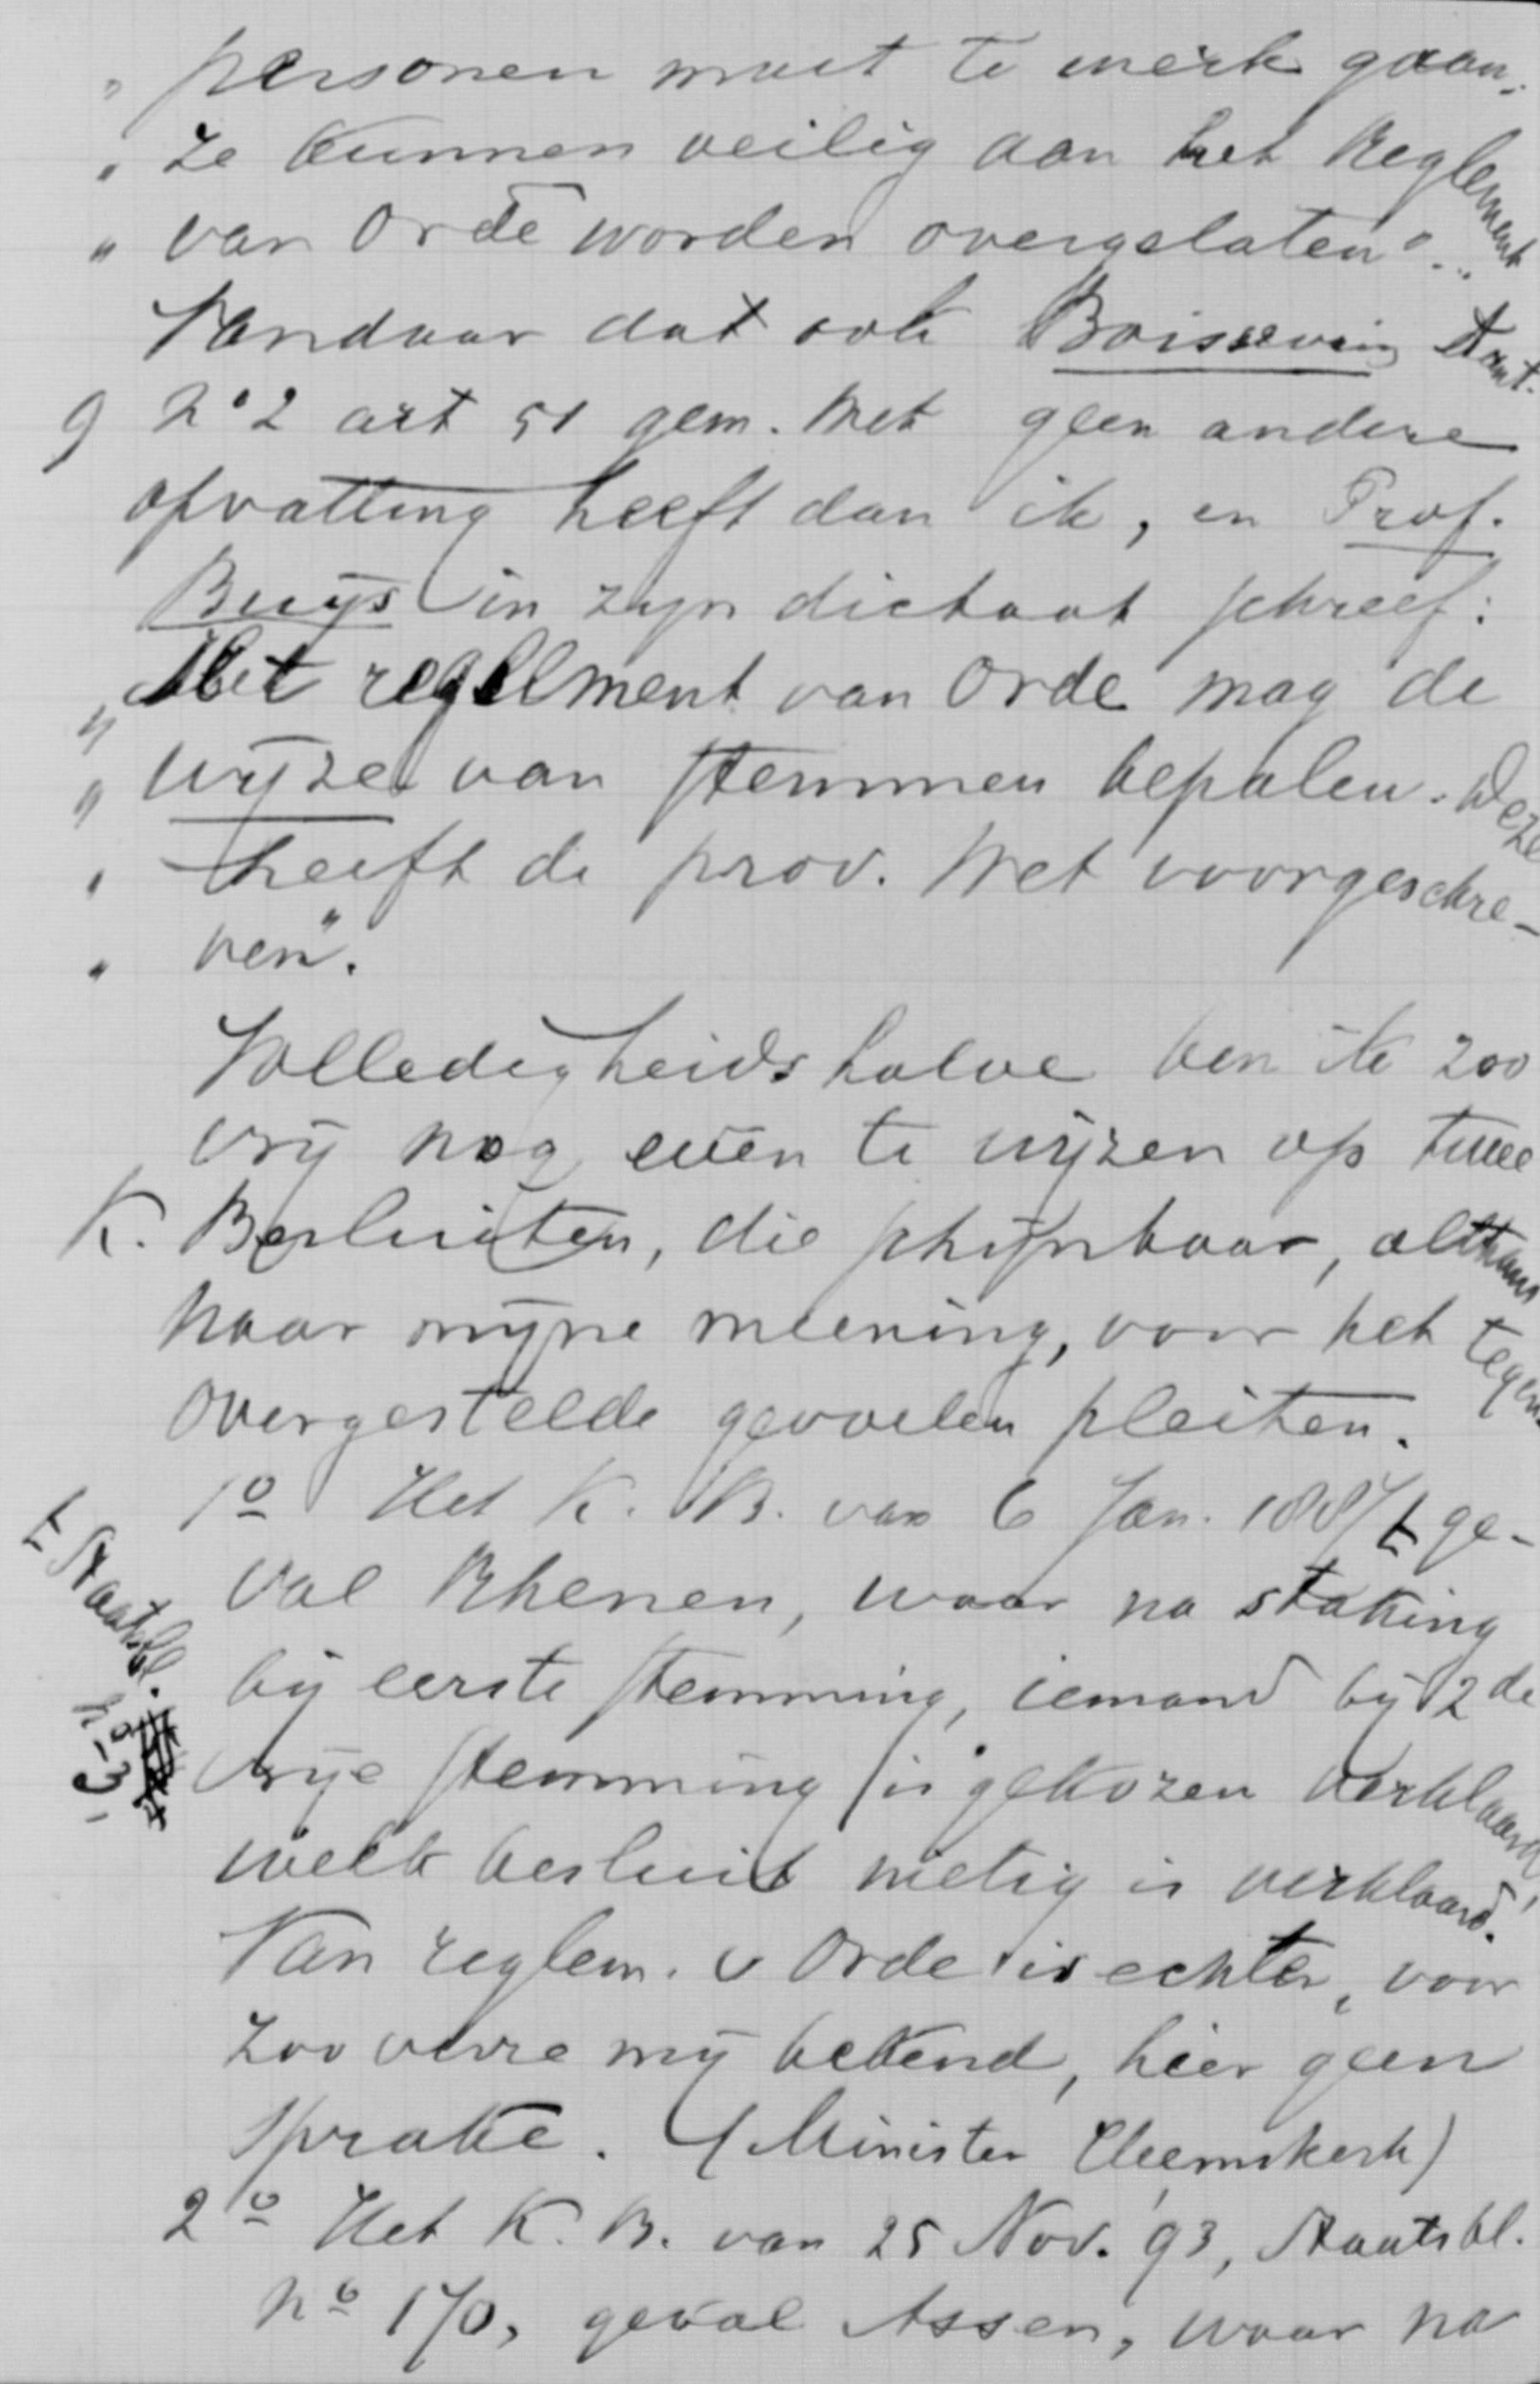 " personen moet te werk gaan.
" Ze kunnen veilig aan het Reglement
" van Orde worden overgelaten".
Vandaar dat ook Boissevain Aant.
9 No 2 art 51 gem. Wet geen andere
opvatting heeft dan ik, en Prof.
Buijs in zijn dictaat schreef:
" Het reglement van Orde mag de
" wijze van stemmen bepalen. Deze
" heeft de prov. Wet voorgeschre-
" ven".
Volledigheidshalve ben ik zoo
vrij nog even te wijzen op twee
K. Besluiten, die schijnbaar, althans
naar mijne meening, voor het tegen-
overgestelde gevoelen pleiten.
1o Het K. B. van 6 Jan. 1887 ge-
Staatsbl. no 3
val Rhenen, waar na staking
bij eerste stemming, iemand bij 2de
vrije stemming is gekozen verklaard,
welk besluit nietig is verklaard.
Van reglem. v Orde is echter, voor
zoo verre mij bekend, hier geen
sprake. (Minister Heemskerk)
2o Het K. B. van 25 Nov. '93, Staatsbl.
no 170, geval Assen, waar na